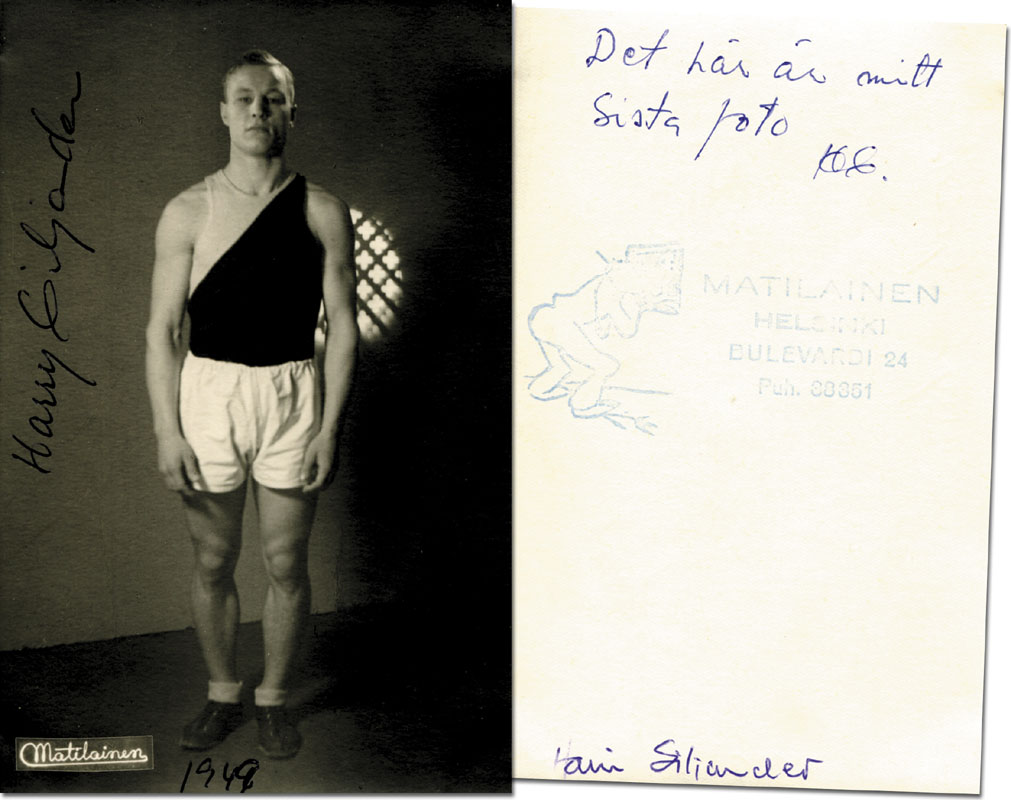 Harry Siljander
Matilainen
1949
Det här är mitt
Sista foto
HS.
MATILAINEN
HELSINKI
BULEVARDI 24
Puh.
Siljander